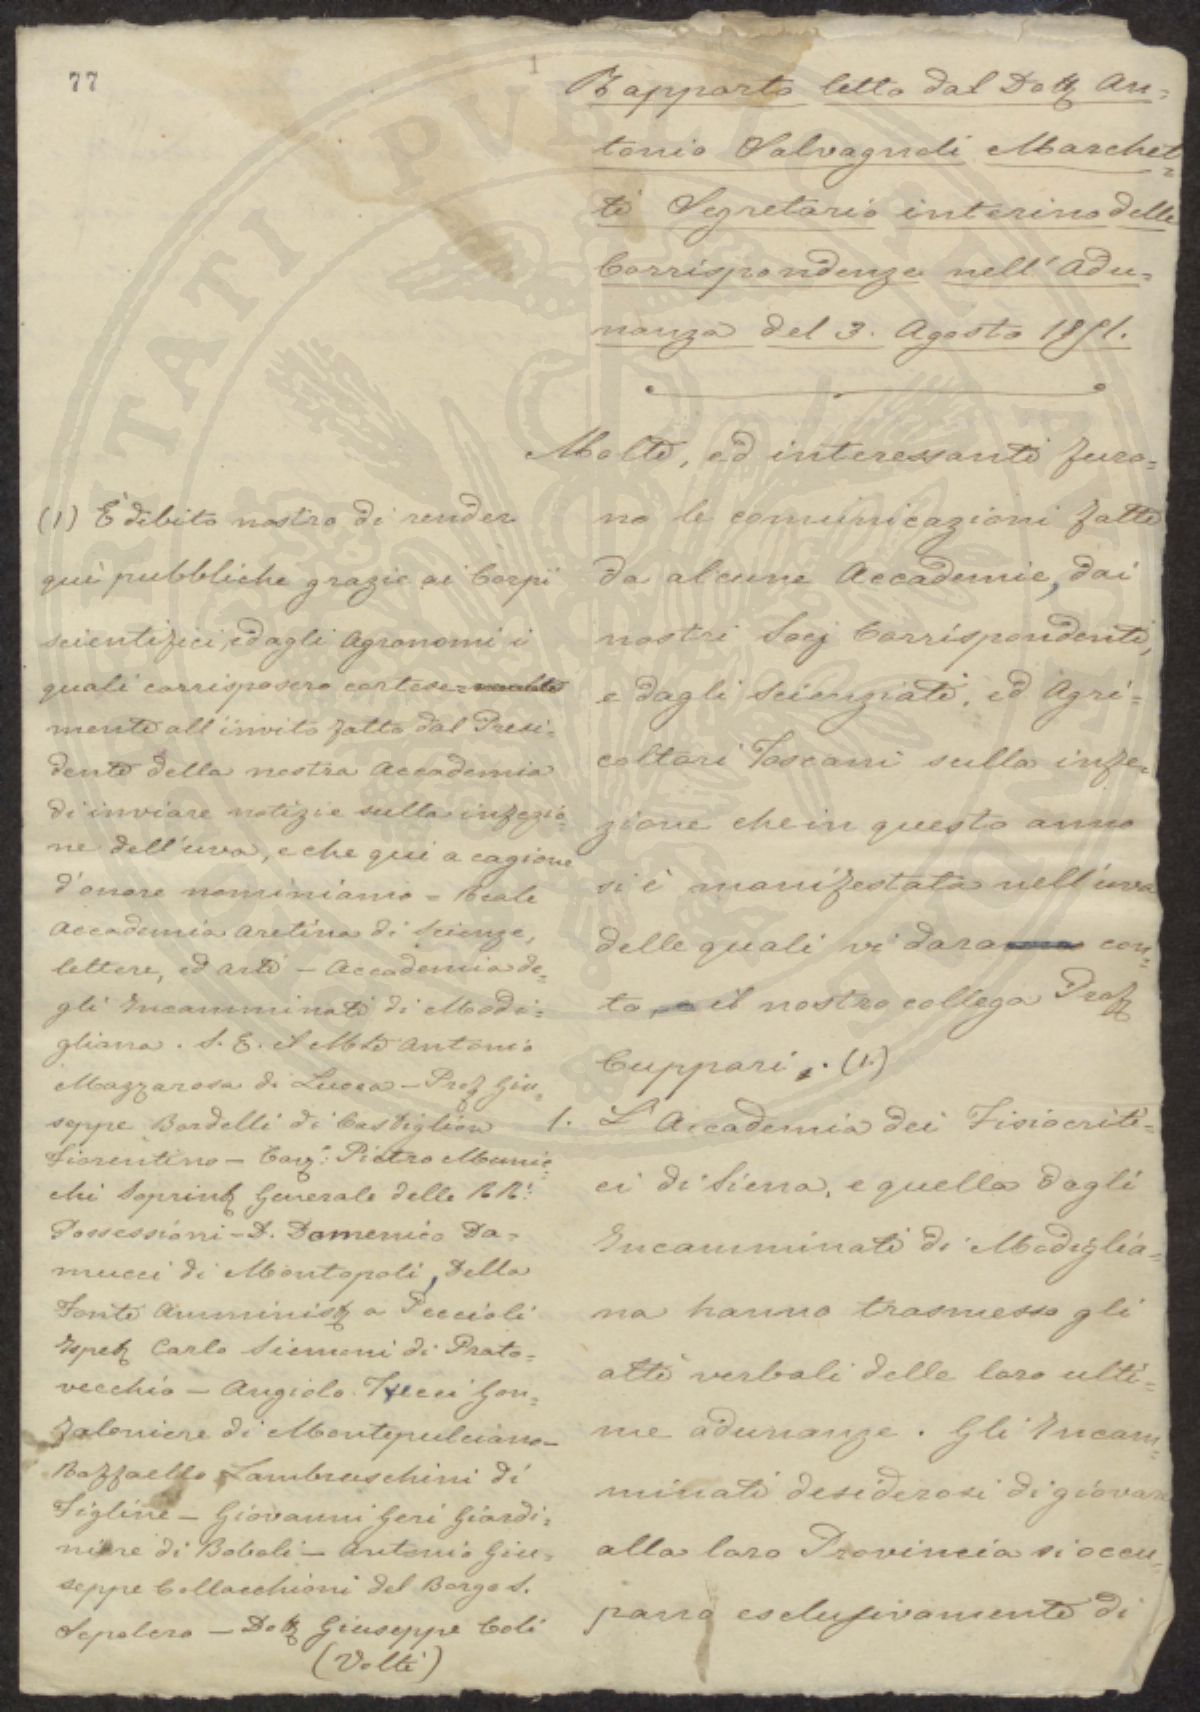 77
1
Rapporto letto dal Dott An=
tonio Salvagnoli Marchet=
ti Segretario interino delle
Corrispondenze nell'Adu=
nanza del 3. Agosto 1851.
Molte, ed interessanti furo=
no le comunicazioni fatte
da alcune Accademie, dai
nostri Socj Corrispondenti,
e dagli Scienziati, ed Agri=
coltori Toscani sulla infe=
zione che in questo anno
si è manifestata nell'uva
delle quali vi darà con=
to il nostro collega Prof
Cuppari. (1.)
1. L'Accademia dei Fisiocriti=
ci di Siena, e quella degli
Incamminati di Modiglia=
na hanno trasmesso gli
atti verbali delle loro ulti=
me adunanze. Gli Incam=
minati desiderosi di giovare
alla loro Provincia si occu=
paro esclusivamente di
(1) È dibito nostro di render
quì pubbliche grazie ai Corpi
scientifici, ed agli Agronomi i
quali corrisposero cortese=
mente all'invito fatto dal Presi=
dente della nostra Accademia
di inviare notizie sulla infezio=
ne dell'uva, e che quì a cagione
d'onore nominiamo = Reale
Accademia Aretina di Scienze,
lettere, ed arti — Accademia de=
gli Incamminati di Modi=
gliana. S. E. il Mse Antonio
Mazzarosa di Lucca — Prof Giu=
seppe Bordelli di Castiglion
Fiorentino — Cav: Pietro Munic=
chi Soprint Generale delle RR:
Possessioni — D. Domenico Da=
mucci di Montopoli, Della
Fonte Amminist a Peccioli
Ispet Carlo Siemoni di Prato=
vecchio — Angiolo Tucci Gon=
faloniere di Montepulciano —
Raffaello Lambruschini di
Figline — Giovanni Geri Giardi=
niere di Boboli — Antonio Giu=
seppe Collacchioni del Borgo S.
Sepolcro — Dott Giuseppe Coli
(Volti)